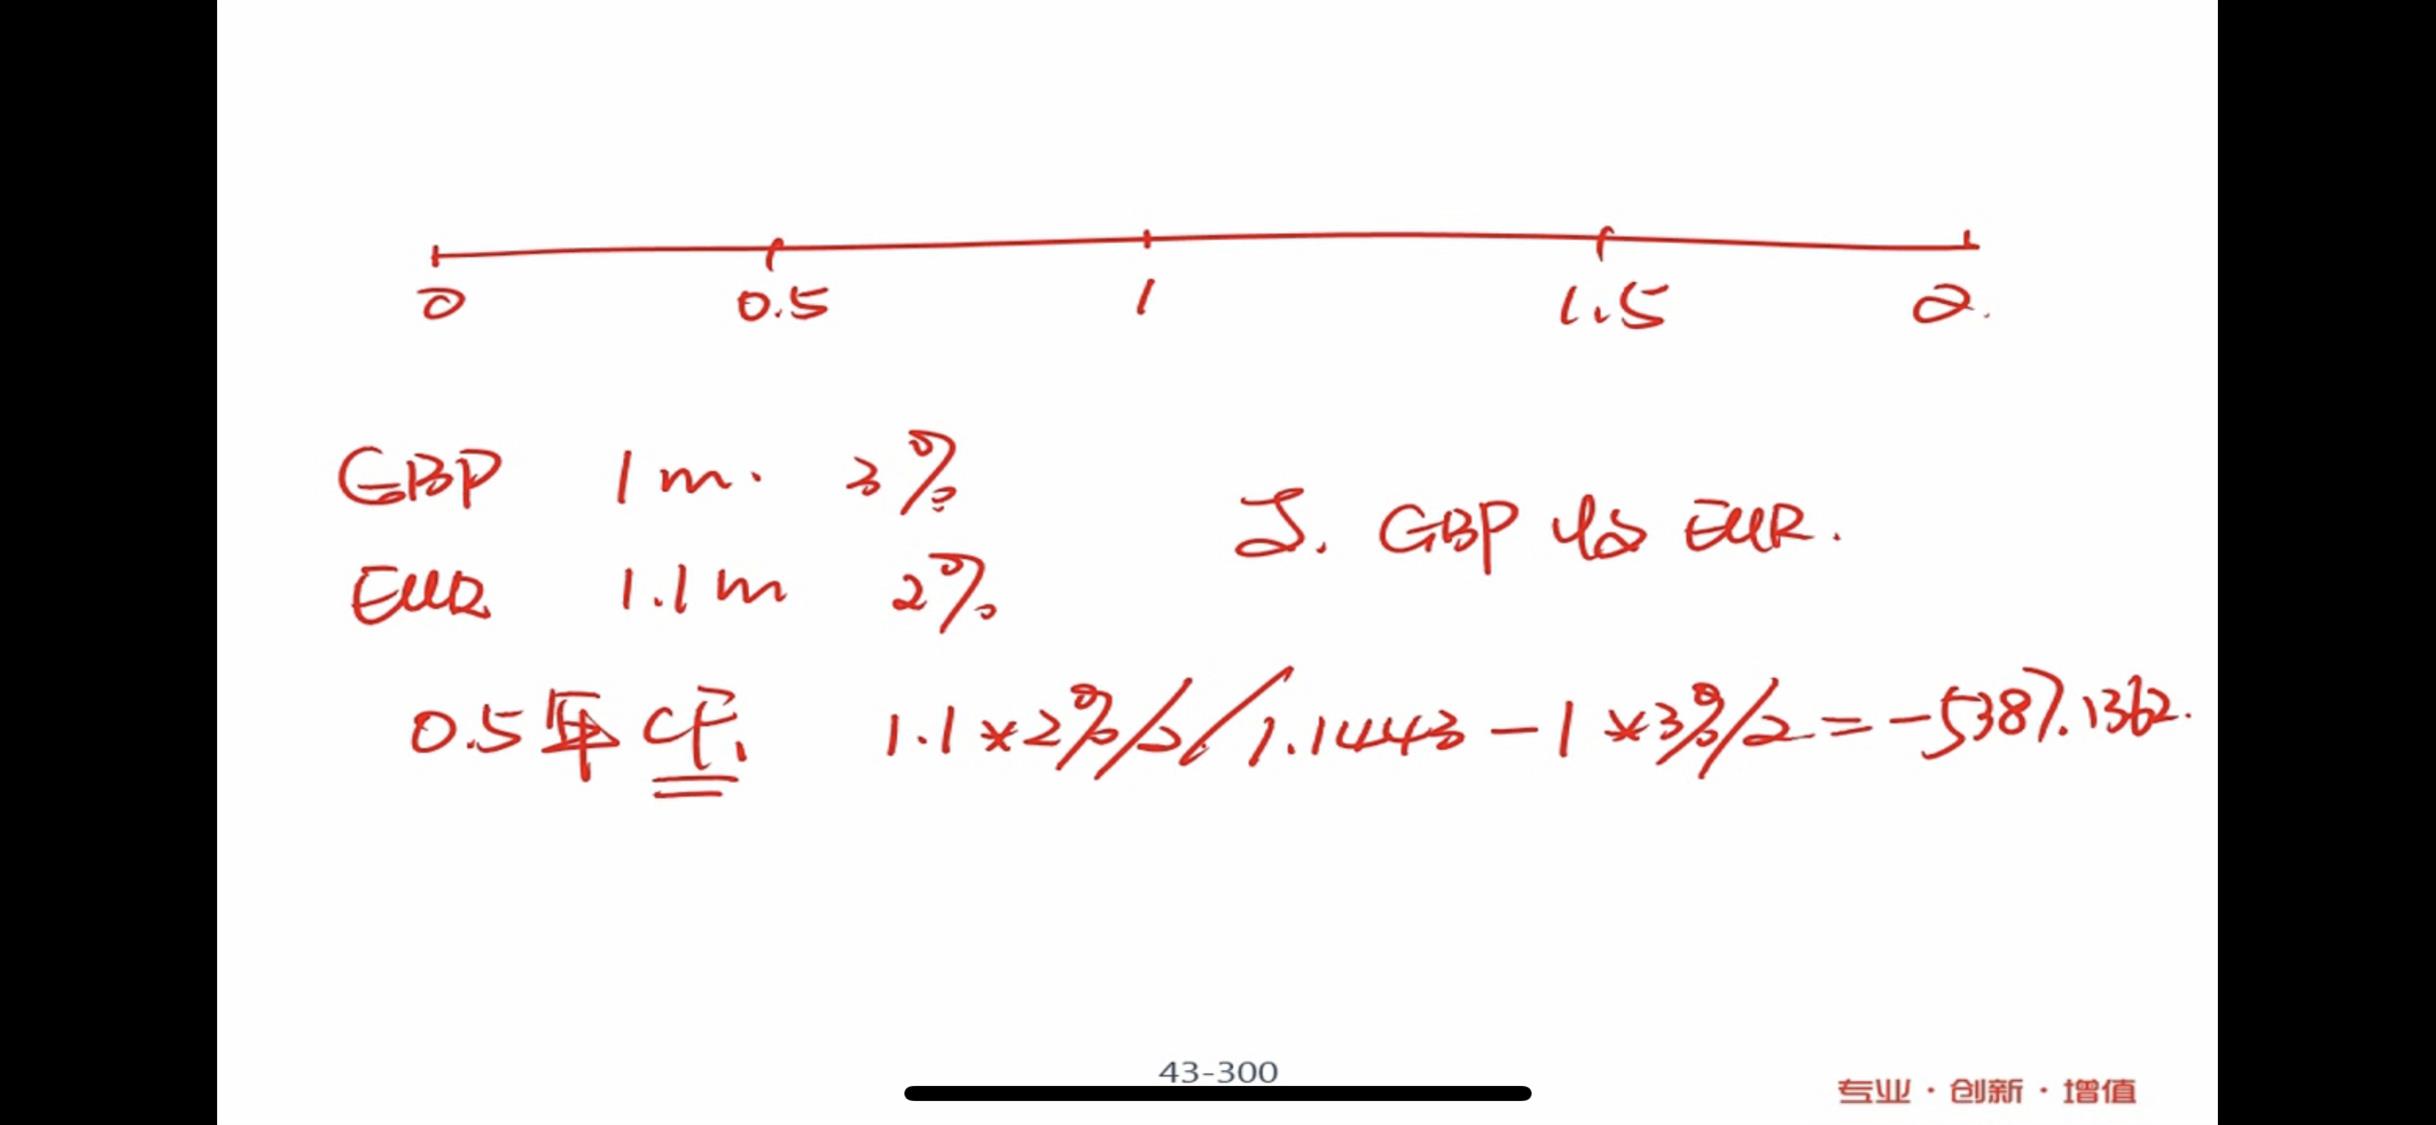 0 0.5 1 1.5 2.
GBP 1m. 3%
I. GBP vs EUR.
EUR 1.1m 2%
0.5年CF. 1.1*2%/2/1.1443-1*3%/2=-5387.1362.
43-300
专业·创新·增值